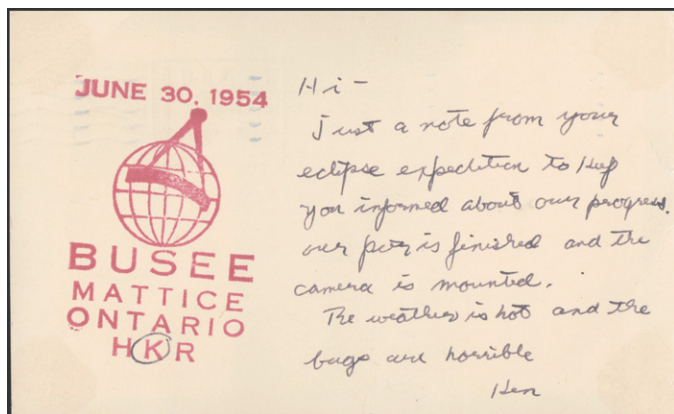 JUNE 30, 1954
BUSEE
MATTICE
ONTARIO
HKR
Hi -
Just a note from your
eclipse expedition to keep
you informed about our progress.
our is finished and the
camera is mounted.
The weather is hot and the
bugs are horrible
Ken